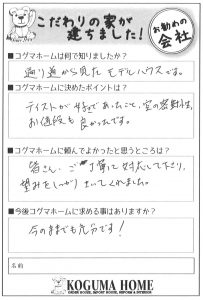 こだわりの家が
建ちました!
お勧めの
会社
■コグマホームは何で知りましたか?
通り道から見たモデルハウスです。
■コグマホームに決めたポイントは?
テイストが好みであったこと、室の密封性、
お値段も良かったです。
■コグマホームに頼んでよかったと思うところは?
皆さん、ご丁寧に対応して下さり、
望みをしっかりきいてくれました。
■今後コグマホームに求める事はありますか?
今のままでも充分です!
名前
KOGUMA HOME
ORDER HOUSE, IMPORT HOUSE, REFORM & INTERIOR